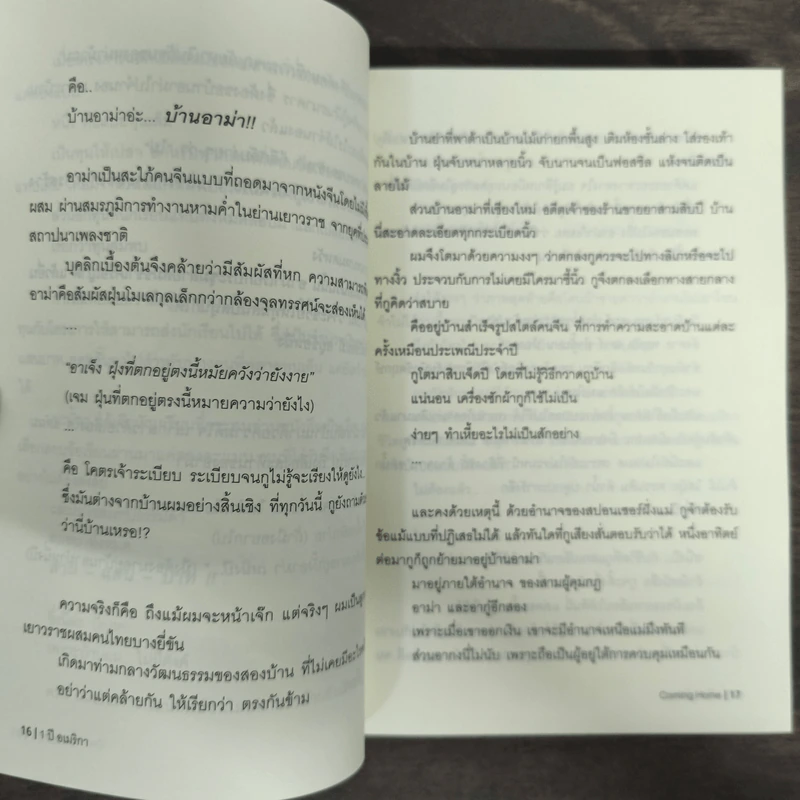 คือ..
บ้านอาม่าอ่ะ... บ้านอาม่า!!
อาม่าเป็นสะใภ้คนจีนแบบที่ถอดมาจากหนังจีนโดยไม่มี
ผสม ผ่านสมรภูมิการทำงานหามค่ำในย่านเยาวราช จากยุคที่
สถาปนาเพลงชาติ
บุคลิกเบื้องต้นจึงคล้ายว่ามีสัมผัสที่หก ความสามารถ
อาม่าคือสัมผัสฝุ่นโมเลกุลเล็กกว่ากล้องจุลทรรศน์จะส่องเห็นได้
...
“อาเจ็ง ฝุ่งที่ตกอยู่ตงนี้หมัยควังว่ายังงาย”
(เจม ฝุ่นที่ตกอยู่ตรงนี้หมายความว่ายังไง)
...
คือ โคตรเจ้าระเบียบ ระเบียบจนกูไม่รู้จะเรียงให้ดูยังไง..
ซึ่งมันต่างจากบ้านผมอย่างสิ้นเชิง ที่ทุกวันนี้ กูยังถามตัว
ว่านี่บ้านเหรอ!?
ความจริงก็คือ ถึงแม้ผมจะหน้าเจ๊ก แต่จริงๆ ผมเป็น
เยาวราชผสมคนไทยบางยี่ขัน
เกิดมาท่ามกลางวัฒนธรรมของสองบ้าน ที่ไม่เคยมีอะไร
อย่าว่าแต่คล้ายกัน ให้เรียกว่า ตรงกันข้าม
16 | 1 ปี อเมริกา
บ้านย่าที่พาดำเป็นบ้านไม้เก่ายกพื้นสูง เติมห้องชั้นล่าง ใส่รองเท้า
กันในบ้าน ฝุ่นจับหนาหลายนิ้ว จับนานจนเป็นฟอสซิล แห้งจนคิดเป็น
ลายไม้
ส่วนบ้านอาม่าที่เชียงใหม่ อดีตเจ้าของร้านขายยาสามสิบปี บ้าน
นี้สะอาดละเอียดทุกกระเบียดนิ้ว
ผมจึงโตมาด้วยความงงๆ ว่าตกลงกูควรจะไปทางลิเกหรือจะไป
ทางงิ้ว ประจวบกับการไม่เคยมีใครมาชี้นิ้ว กูจึงตกลงเลือกทางสายกลาง
ที่กูคิดว่าสบาย
คืออยู่บ้านสำเร็จรูปสไตล์คนจีน ที่การทำความสะอาดบ้านแต่ละ
ครั้งเหมือนประเพณีประจำปี
กูโตมาสิบเจ็ดปี โดยที่ไม่รู้วิธีกวาดถูบ้าน
แน่นอน เครื่องซักผ้ากูก็ใช้ไม่เป็น
ง่ายๆ ทำเหี้ยอะไรไม่เป็นสักอย่าง
...
และคงด้วยเหตุนี้ ด้วยอำนาจของสปอนเซอร์ฝั่งแม่ กูจำต้องรับ
ข้อแม้แบบที่ปฏิเสธไม่ได้ แล้วทันใดที่กูเสียงสั่นตอบรับว่าได้ หนึ่งอาทิตย์
ต่อมากูก็ถูกย้ายมาอยู่บ้านอาม่า
มาอยู่ภายใต้อำนาจ ของสามผู้คุมกฎ
อาม่า และอากู๋อีกสอง
เพราะเมื่อเขาออกเงิน เขาจะมีอำนาจเหนือแม่มึงทันที
ส่วนอากงนี่ไม่นับ เพราะถือเป็นผู้อยู่ใต้การควบคุมเหมือนกัน
Coming Home | 17